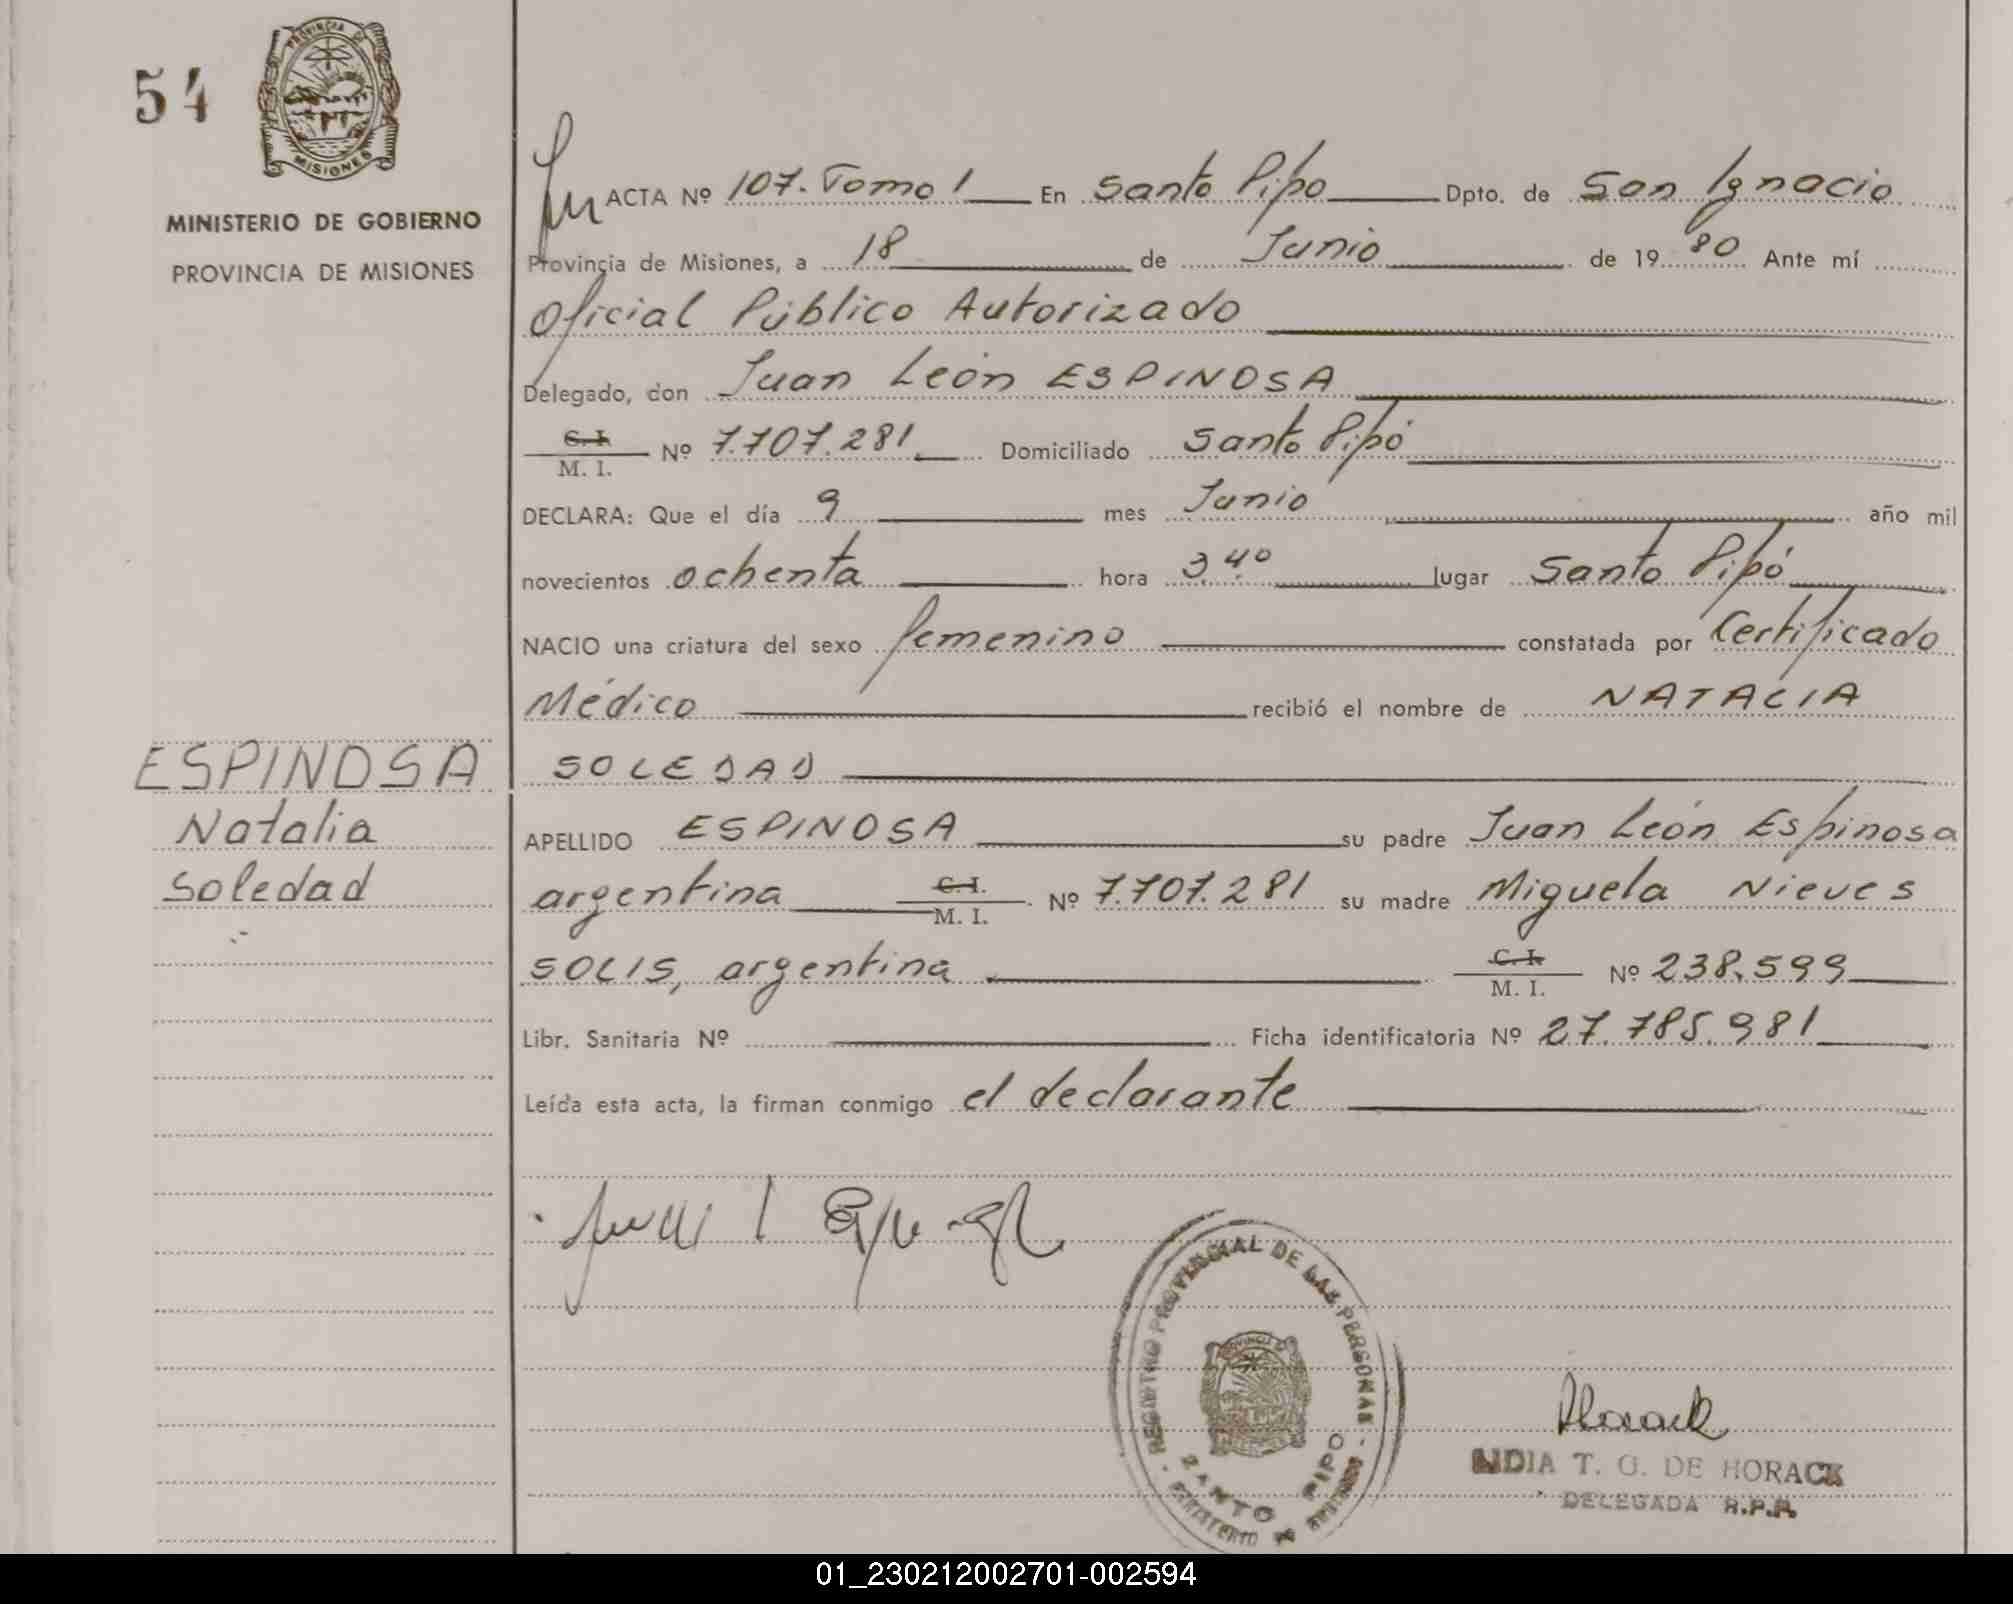 54
PROVINCIA DE
MISIONES
MINISTERIO DE GOBIERNO
PROVINCIA DE MISIONES
ACTA Nº 107. Tomo 1 En Santo Pipo Dpto. de San Ignacio
Provincia de Misiones, a 18 de Junio de 19 80 Ante mí
Oficial Público Autorizado
Delegado, don Juan León ESPINOSA
C. I.
M. I. Nº 7.707.281 Domiciliado Santo Pipó
DECLARA: Que el día 9 mes Junio año mil
novecientos ochenta hora 3,40 lugar Santo Pipó
NACIO una criatura del sexo femenino constatada por Certificado
Médico recibió el nombre de NATALIA
SOLEDAD
ESPINOSA
Natalia
Soledad
APELLIDO ESPINOSA su padre Juan León Espinosa
argentina C. I.
M. I. Nº 7.707.281 su madre Miguela Nieves
SOLIS, argentina C. I.
M. I. Nº 238.599
Libr. Sanitaria Nº Ficha identificatoria Nº 27.785.981
Leída esta acta, la firman conmigo el declarante
REGISTRO PROVINCIAL DE LAS PERSONAS
SANTO PIPO
MINISTERIO DE
Horack
LIDIA T. G. DE HORACK
DELEGADA R.P.P.
01_230212002701-002594